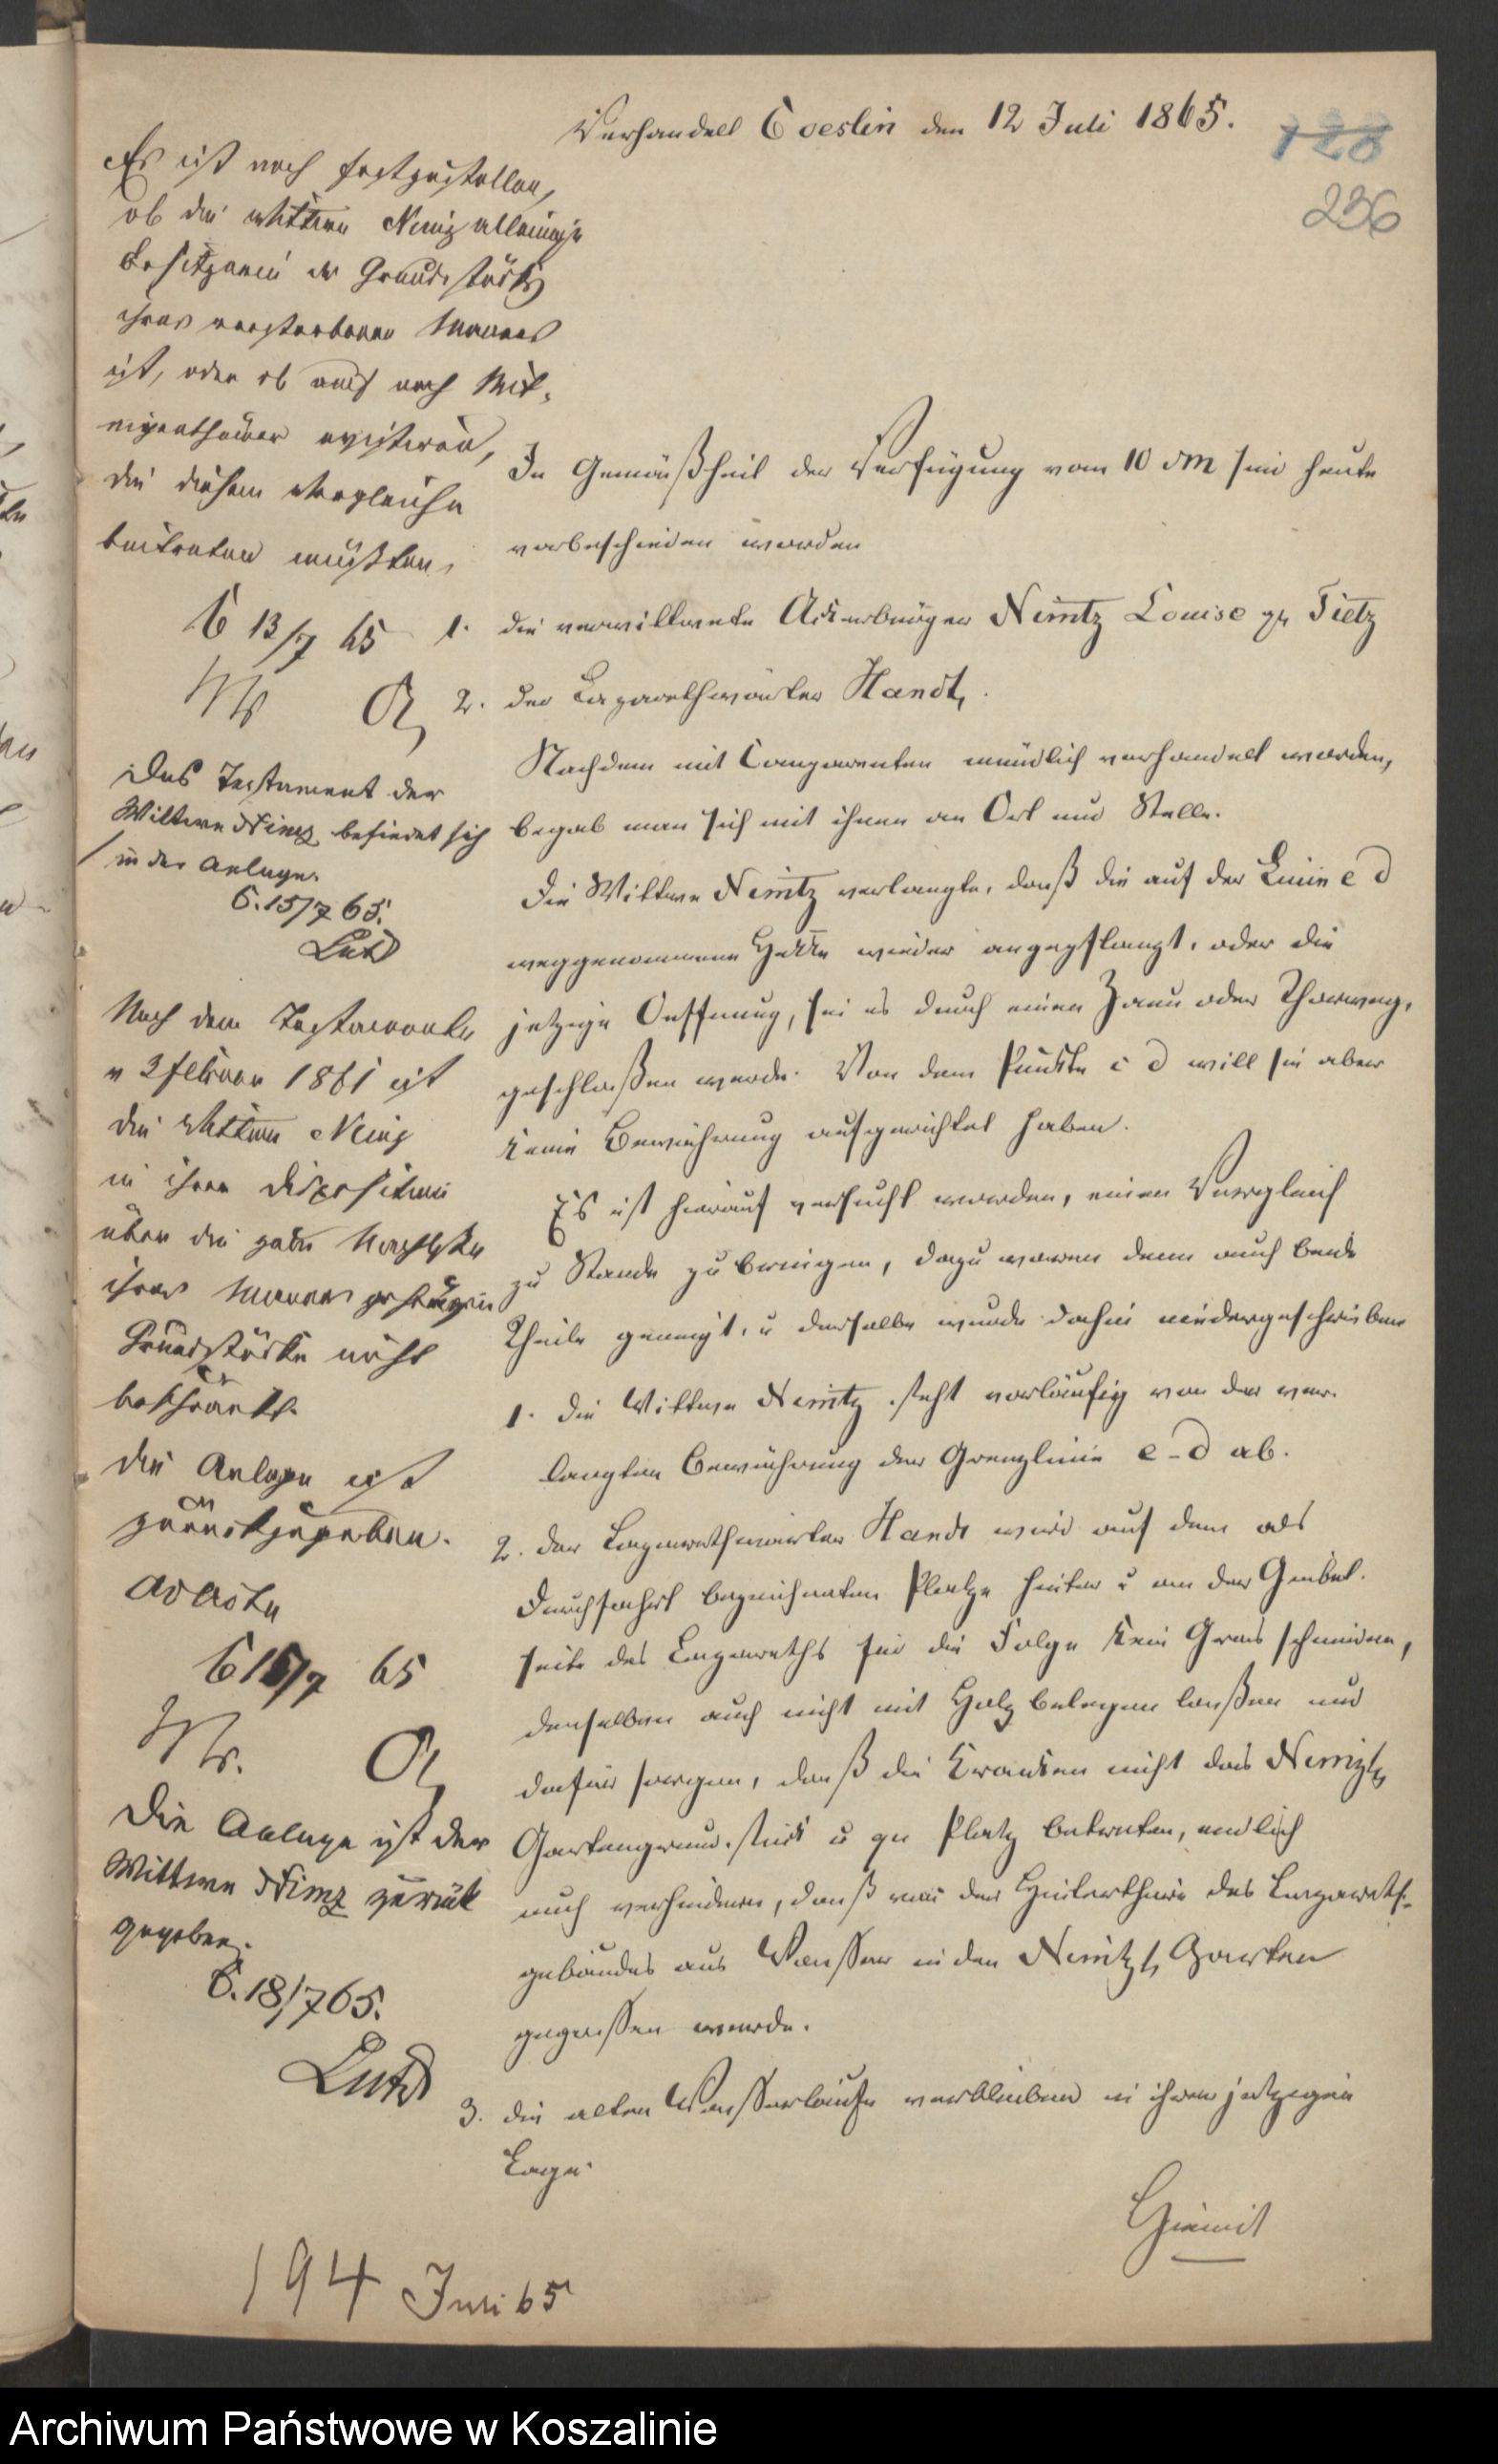 Verhandelt Coeslin den 12 Juli 1865.
128
236
Es ist noch festzustellen,
ob die Wittwe Nemz alleinige
Besitzerin der Grundstücke
ihres verstorbenen Mannes
ist, oder ob auch noch Mit-
eigenthümer existiren,
die diesem Vergleiche
beitreten müßten.
C 13/7 65
Das Testament der
Wittwe Nimz befindet sich
in der Anlage.
C. 15/7 65.
Nach dem Testamente
v 3 Februar 1861 ist
die Wittwe Nemz
in ihrer Disposition
über die zum Nachlasse
ihres Mannes gehörigen
Grundstücke nicht
beschränkt.
Die Anlage ist
zurückzugeben.
C 15/7 65
Die Anlage ist der
Wittwe Nimz zurück
gegeben.
C. 18/7 65.
In Gemäßheit der Verfügung vom 10 dM sind heute
vorbeschieden worden
1. die verwittwete Ackerbürger Nemtz Louise gb Tietz
2. der Lazarethwärter Handt.
Nachdem mit Comparenten mündlich verhandelt worden,
begab man sich mit ihnen an Ort und Stelle.
Die Wittwe Nemtz verlangte, daß die auf der Linie c d
weggenommene Hecke wieder angepflanzt, oder die
jetzige Oeffnung, sei es durch einen Zaun oder Thorweg,
geschloßen werde. Von dem Punkte c d will sie aber
keine Bewährung aufgerichtet haben.
Es ist hierauf versucht worden, einen Vergleich
zu Stande zu bringen, dazu waren denn auch beide
Theile geneigt, u derselbe wurde dahin niedergeschrieben
1. die Wittwe Nemtz steht vorläufig von der ver-
langten Bewährung der Grenzlinie c-d ab.
2. der Lazarethwärter Handt wird auf dem als
Durchfahrt bezeichneten Platze hinter u an der Giebel-
seite des Lazareths für die Folge kein Gras schneiden,
denselben auch nicht mit Holz belegen laßen und
dafür sorgen, daß die Kranken nicht das Nemtz
Gartengrundstück u qu Platz betreten, endlich
auch verhindern, daß von der Hinterthüre des Lazareth-
gebäudes aus Wasser in den Nemtz Garten
gegossen werde.
3. die alten Wasserläufe verbleiben in ihrer jetzigen
Lage.
194 Juli 65
Archiwum Państwowe w Koszalinie